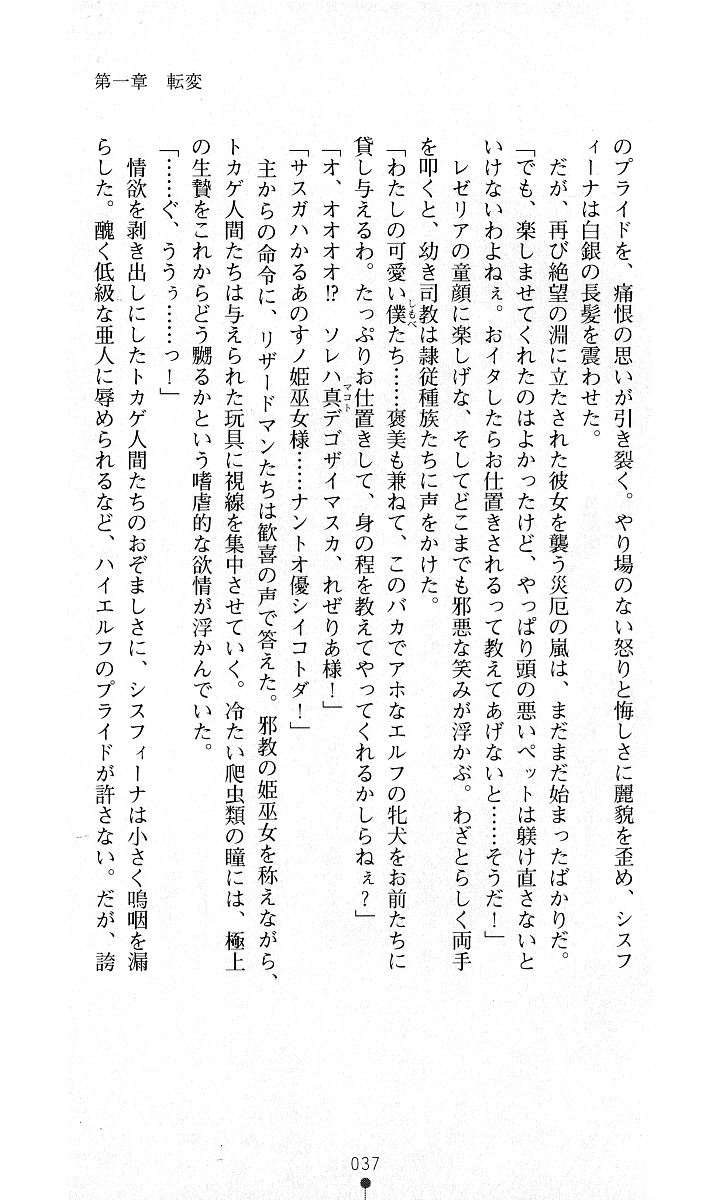 第一章　転変
のプライドを、痛恨の思いが引き裂く。やり場のない怒りと悔しさに麗貌を歪め、シスフ
ィーナは白銀の長髪を震わせた。
　だが、再び絶望の淵に立たされた彼女を襲う災厄の嵐は、まだまだ始まったばかりだ。
「でも、楽しませてくれたのはよかったけど、やっぱり頭の悪いペットは躾け直さないと
いけないわよねぇ。おイタしたらお仕置きされるって教えてあげないと……そうだ！」
　レゼリアの童顔に楽しげな、そしてどこまでも邪悪な笑みが浮かぶ。わざとらしく両手
を叩くと、幼き司教は隷従種族たちに声をかけた。
「わたしの可愛い僕たち……褒美も兼ねて、このバカでアホなエルフの牝犬をお前たちに
しもべ
貸し与えるわ。たっぷりお仕置きして、身の程を教えてやってくれるかしらねぇ？」
「オ、オオオオ!?　ソレハ真デゴザイマスカ、れぜりあ様！」
マコト
「サスガハかるあのすノ姫巫女様……ナントオ優シイコトダ！」
　主からの命令に、リザードマンたちは歓喜の声で答えた。邪教の姫巫女を称えながら、
トカゲ人間たちは与えられた玩具に視線を集中させていく。冷たい爬虫類の瞳には、極上
の生贄をこれからどう嬲るかという嗜虐的な欲情が浮かんでいた。
「……ぐ、ううぅ……っ！」
　情欲を剥き出しにしたトカゲ人間たちのおぞましさに、シスフィーナは小さく嗚咽を漏
らした。醜く低級な亜人に辱められるなど、ハイエルフのプライドが許さない。だが、誇
037